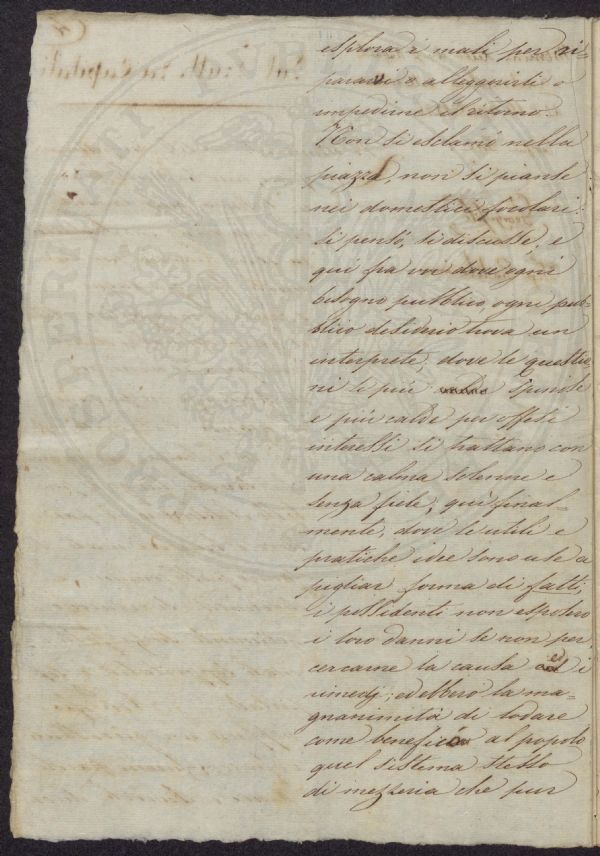 esplora i mali per ri=
pararvi o alleggerirli o
impedirne il ritorno.
Non si esclamò nella
piazza, non si pianse
nei domestici focolari:
si pensò, si discusse, e
qui fra voi dove ogni
bisogno pubblico, ogni pub=
blico desiderio trova un
interprete, dove le questio
ni le più spinose
e più calde per offesi
interessi si trattano con
una calma solenne e
senza fiele, quì final=
mente, dove le utili e
pratiche idee sono use a
pigliar forma di fatti,
i possidenti non esposero
i loro danni se non per
cercarne la causa ed i
rimedj; ed ebbero la ma=
gnanimità di lodare
come benefico al popolo
quel sistema stesso
di mezzeria che pur
PROSPERITATI PUB